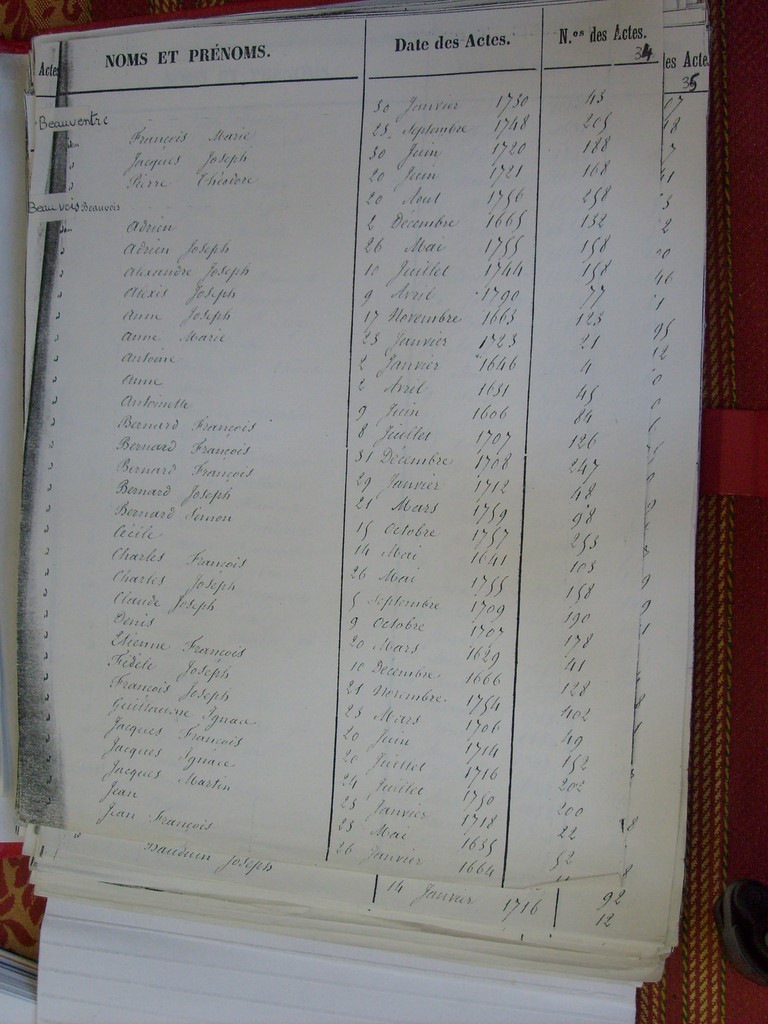 Actes NOMS ET PRÉNOMS. Date des Actes. N.os des Actes. 34
es Actes. 35
Beauventre 30 Janvier 1730 43
François Marie 23 Septembre 1748 205
Jacques Joseph 30 Juin 1720 188
Pierre Théodore 20 Juin 1721 168
Beauvois Beauvois 20 Aout 1756 258
Adrien 2 Décembre 1665 132
Adrien Joseph 26 Mai 1755 158
Alexandre Joseph 10 Juillet 1744 158
Alexis Joseph 9 Avril 1790 77
Anne Joseph 17 Novembre 1663 123
Anne Marie 23 Janvier 1723 21
Antoine 2 Janvier 1646 4
Anne 2 Avril 1651 45
Antoinette 9 Juin 1606 84
Bernard François 8 Juillet 1707 126
Bernard François 31 Décembre 1708 247
Bernard François 29 Janvier 1712 48
Bernard Joseph 21 Mars 1759 98
Bernard Simon 15 Octobre 1757 253
Cécile 14 Mai 1641 103
Charles François 26 Mai 1755 158
Charles Joseph 5 Septembre 1709 190
Claude Joseph 9 Octobre 1707 178
Denis 20 Mars 1629 41
Etienne François 10 Décembre 1666 128
Fidèle Joseph 21 Novembre 1754 402
François Joseph 23 Mars 1706 49
Guillaume Ignace 20 Juin 1714 152
Jacques François 20 Juillet 1716 202
Jacques Ignace 24 Juillet 1750 200
Jacques Martin 23 Janvier 1718 22
Jean 23 Mai 1635 52
Jean François 26 Janvier 1664
92
Bauduin Joseph 14 Janvier 1716 12